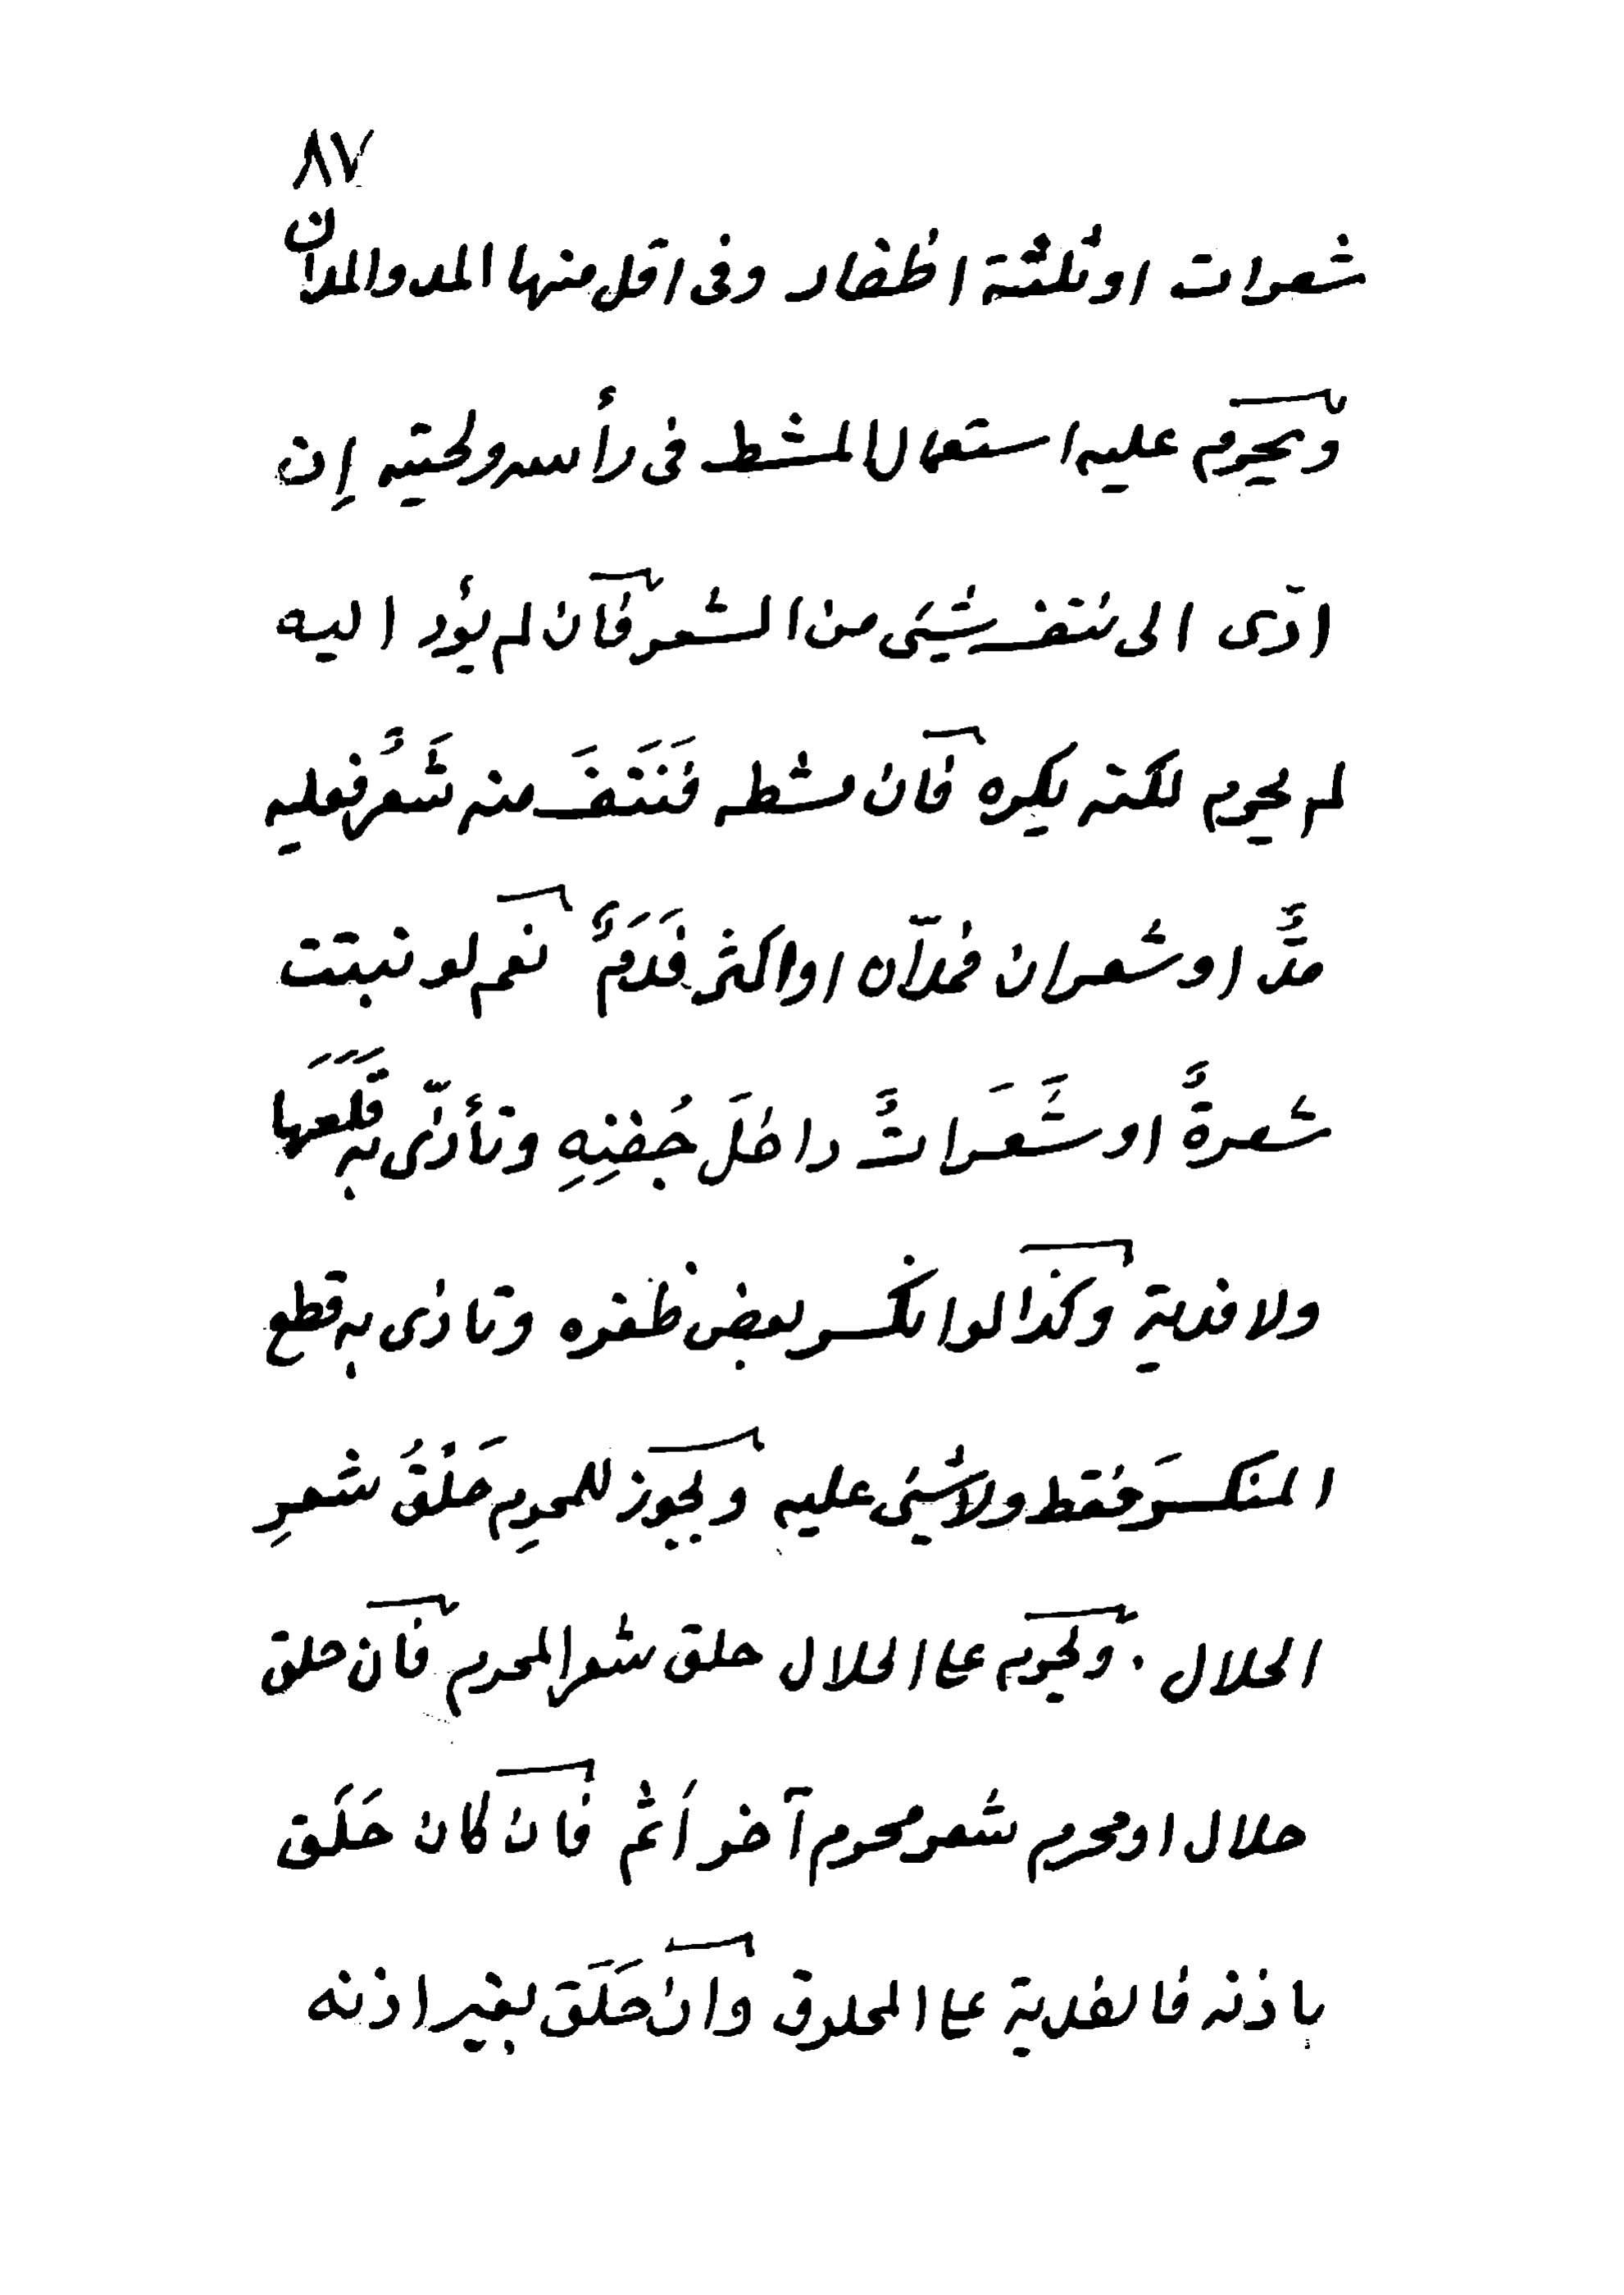 ٨٧
شعرات او ثلثة اظفار وفى اقل منها المد والمدان
ويحرم عليه استعمال المشط فى رأسه ولحيته إن
ادّى الى نتف شيئ من الشعر فان لم يؤد اليه
لم يحرم لكنه يكره فان مشطه فَنَتَفَ منه شَعْرٌ فعليه
مدٌّ او شعران فمدّان او اكثر فَدَمٌ نعم لو نبتت
شعرةٌ او شَعَراتٌ داخلَ جُفنِهِ وتأذّى به قَلَعَها
ولا فدية وكذا لو انكسر بعض ظفره وتاذى به قطع
المنكسرَ فقط ولا شيئ عليه ويجوز للمحرِم حَلْقُ شعرِ
الحلال . ويحرم على الحلال حلق شعر المحرم فان حلق
حلال او محرم شعر محرم آخر أَثم فان كان حَلَق
بإذنه فالفدية على المحلوق وان حَلَق بغير اذنه